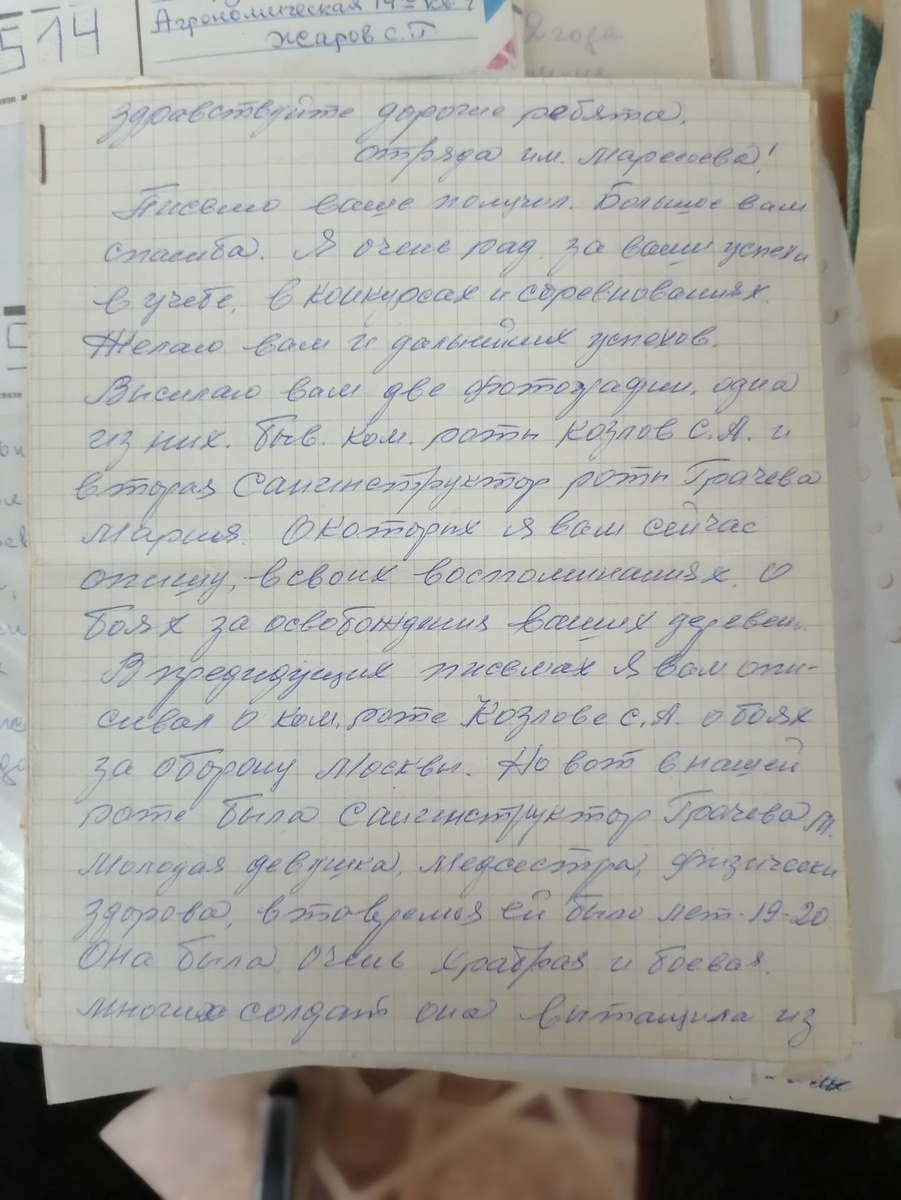 514
Агрономическая 14 кв 7
Жаров С.Г.
2 года
Здравствуйте дорогие ребята,
отряда им. Маресьева!
Письмо ваше получил. Большое вам
спасиба. Я очень рад за ваши успехи
в учебе, в конкурсах и соревнованиях.
Желаю вам и дальнейших успехов.
Высилаю вам две фотографии. одна
из них. быв. ком. роты Козлов С.А. и
вторая Санинструктор роты Грачева
Мария. О которых я вам сейчас
опишу, в своих воспоминаниях, о
боях за освобождения ваших деревень.
В предидущих письмах я вам опи-
сивал о ком. роте Козлове С.А. о боях
за оборону Москвы. Но вот в нашей
роте была Санинструктор Грачева М.
Молодая девушка, Медсестра, физически
здорова, в то время ей было лет-19-20
Она была очень храбрая и боевая.
многих солдат она вытащила из